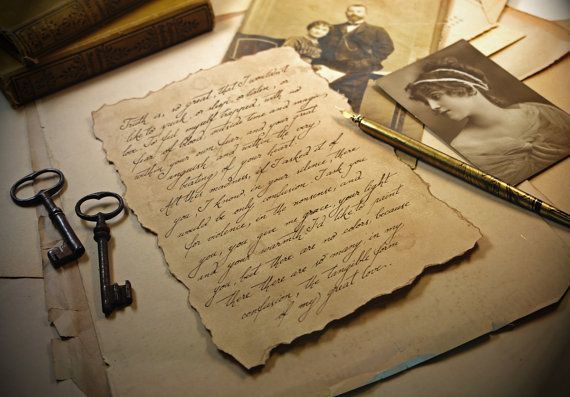 Truth is, so great, that I wouldn't
like to speak, or sleep, or listen, or
love. To feel myself trapped, with no
fear of blood, outside time and magic,
within your own fear, and your great
anguish, and within the very
beating of your heart.
All this madness, if I asked it of
you, I know, in your silence, there
would be only confusion. I ask you
for violence, in the nonsense, and
you, you give me grace, your light
and your warmth. I'd like to paint
you, but there are no colors, because
there are so many, in my
confusion, the tangible form
of my great love.